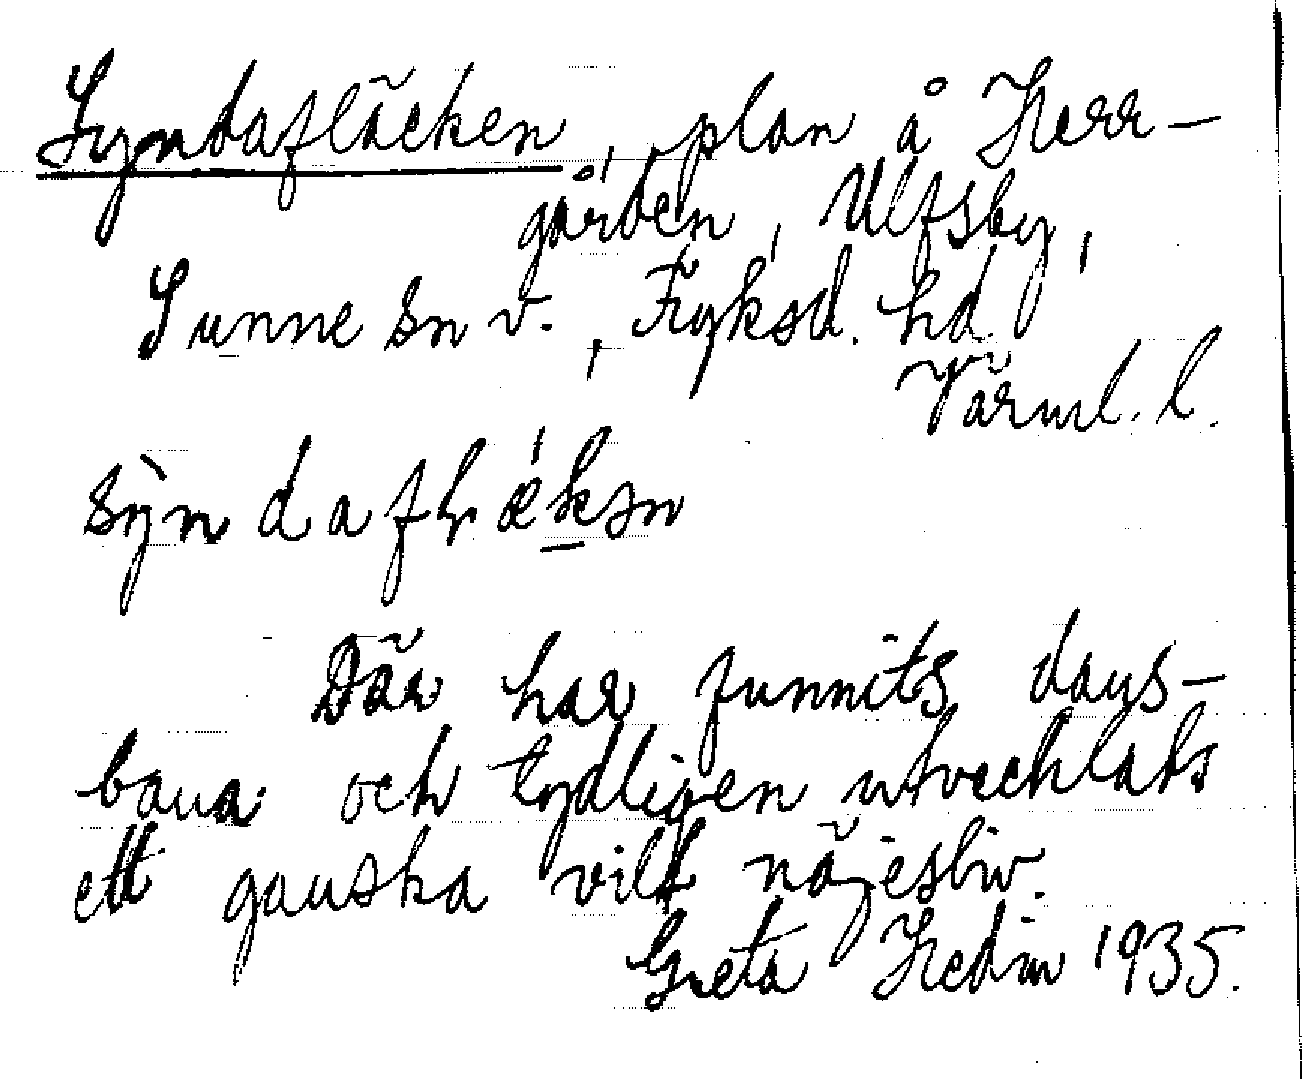 Syndafläcken, plan å Herr-
gården, Ulfsby,
Sunne sn v., Fryksd. hd.
Värml. l.
sỳndaflǽksn
Där har funnits dans-
bana och tydligen utvecklats
ett ganska vilt nöjesliv.
Greta Hedin 1935.